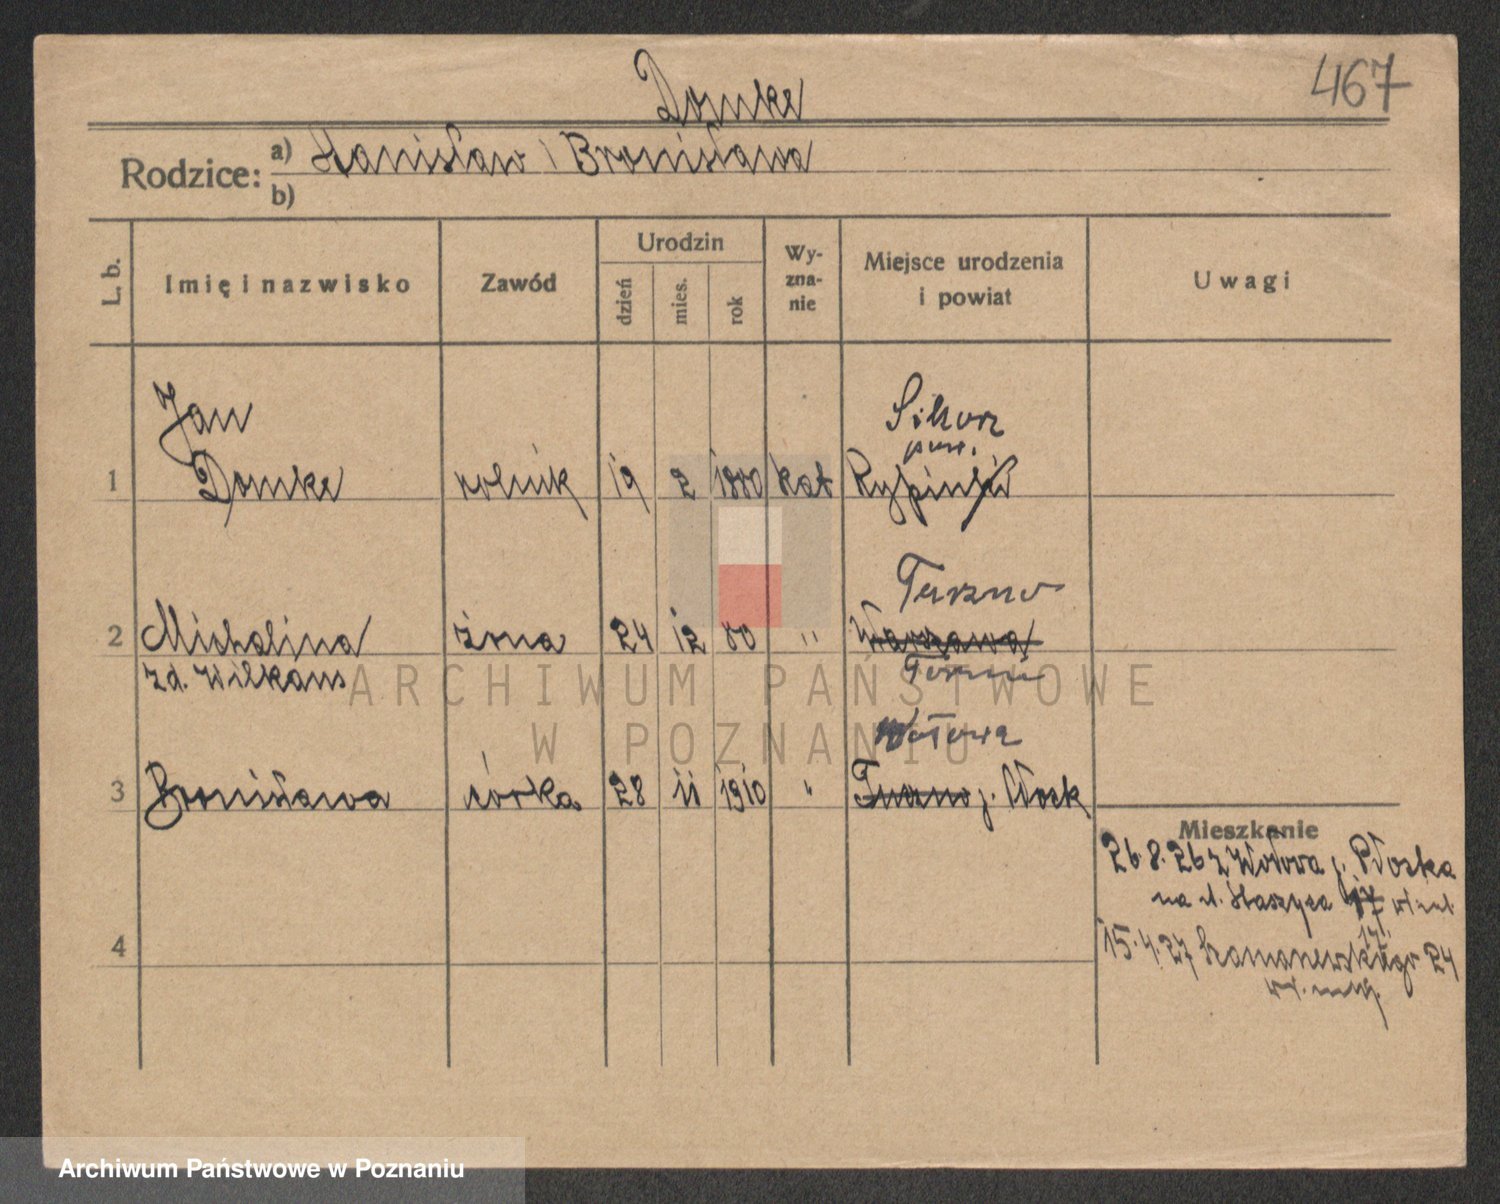 467
Domke
Rodzice: a) Stanisław i Bronisława
b)
L. b. Imię i nazwisko Zawód Urodzin dzień mies. rok Wy-zna-nie Miejsce urodzenia i powiat Uwagi
Jan Sikorz
pow.
1 Domke rolnik 19 2 1880 kat Rypiński
Turzno
2 Michalina żona 24 12 80 " Warszawa
zd. Wilkans Toruń
Wołowa
3 Bronisława córka 28 11 1910 " Turzno p. Płock
Mieszkanie
26.8.26 z Wołowa p. Płocka
na ul. Staszyca 17
4
15.4.27 Szamarzewskiego 24
ARCHIWUM PAŃSTWOWE
W POZNANIU
Archiwum Państwowe w Poznaniu